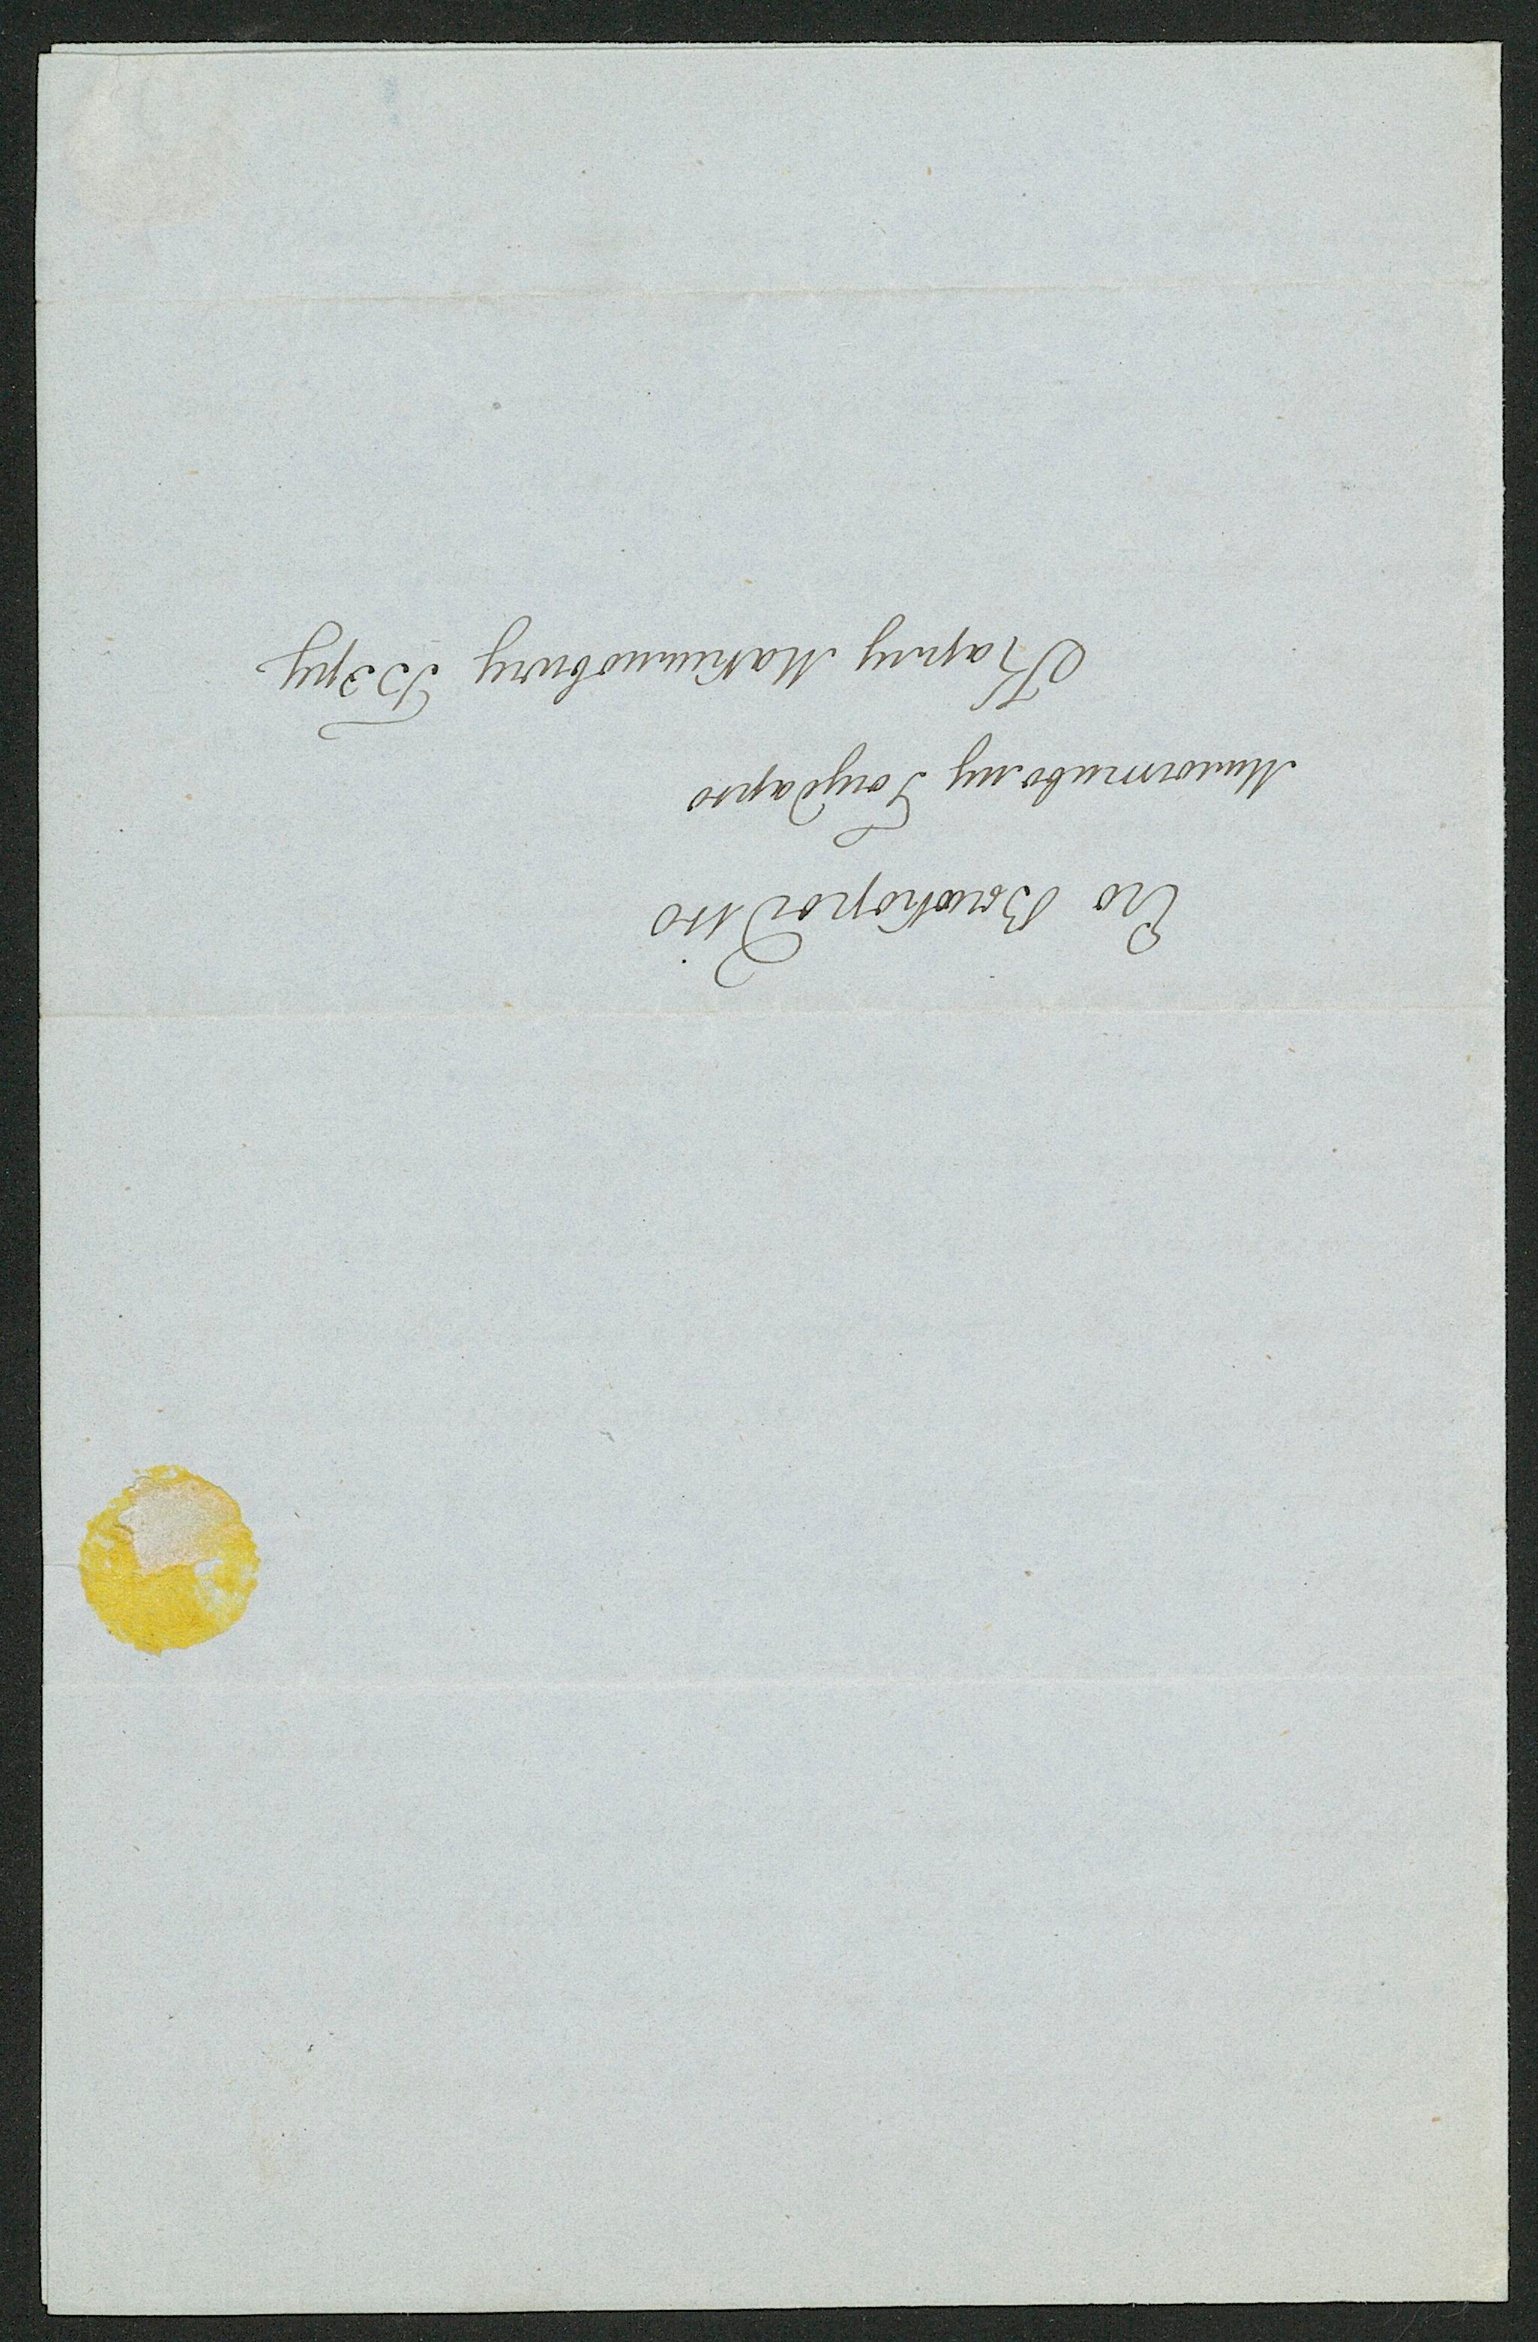 Его Высокородію
Милостивому Государю
Карлу Максимовичу Бэру